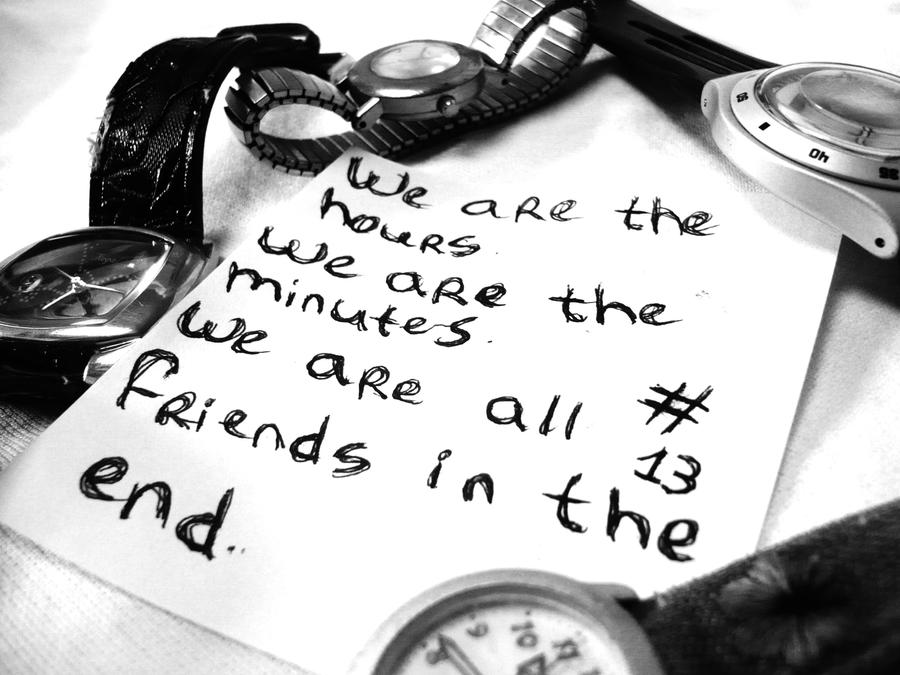 We are the
hours.
We are the
minutes.
We are all #
13
friends in the
end..
40
9
10
11
8